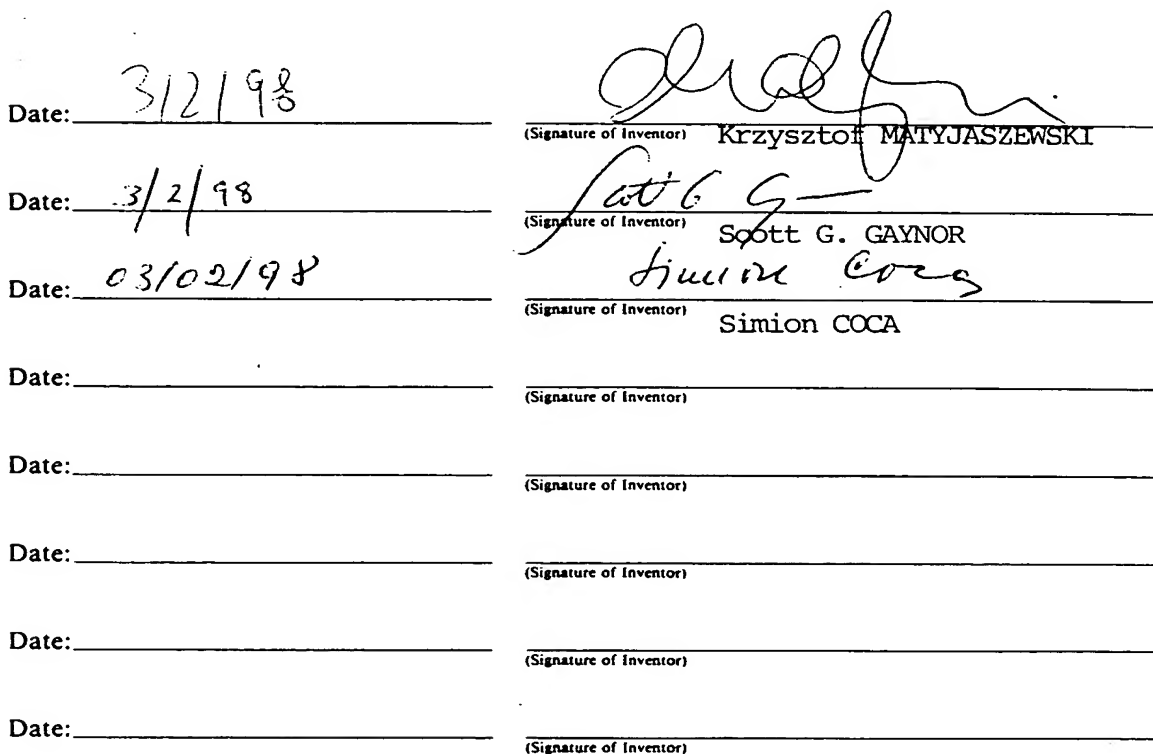 Date: 3/2/98
(Signature of Inventor) Krzysztof MATYJASZEWSKI
Date: 3/2/98 Scott G. G
(Signature of Inventor) Scott G. GAYNOR
Date: 03/02/98 Simion Coca
(Signature of Inventor) Simion COCA
Date:
(Signature of Inventor)
Date:
(Signature of Inventor)
Date:
(Signature of Inventor)
Date:
(Signature of Inventor)
Date:
(Signature of Inventor)